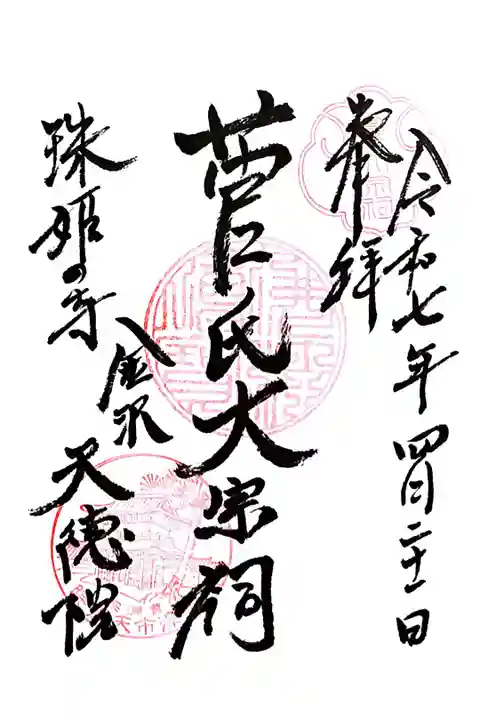 奉拝
令和七年四月二十一日
菅氏大宗祠
珠姫の寺
金沢
天徳院